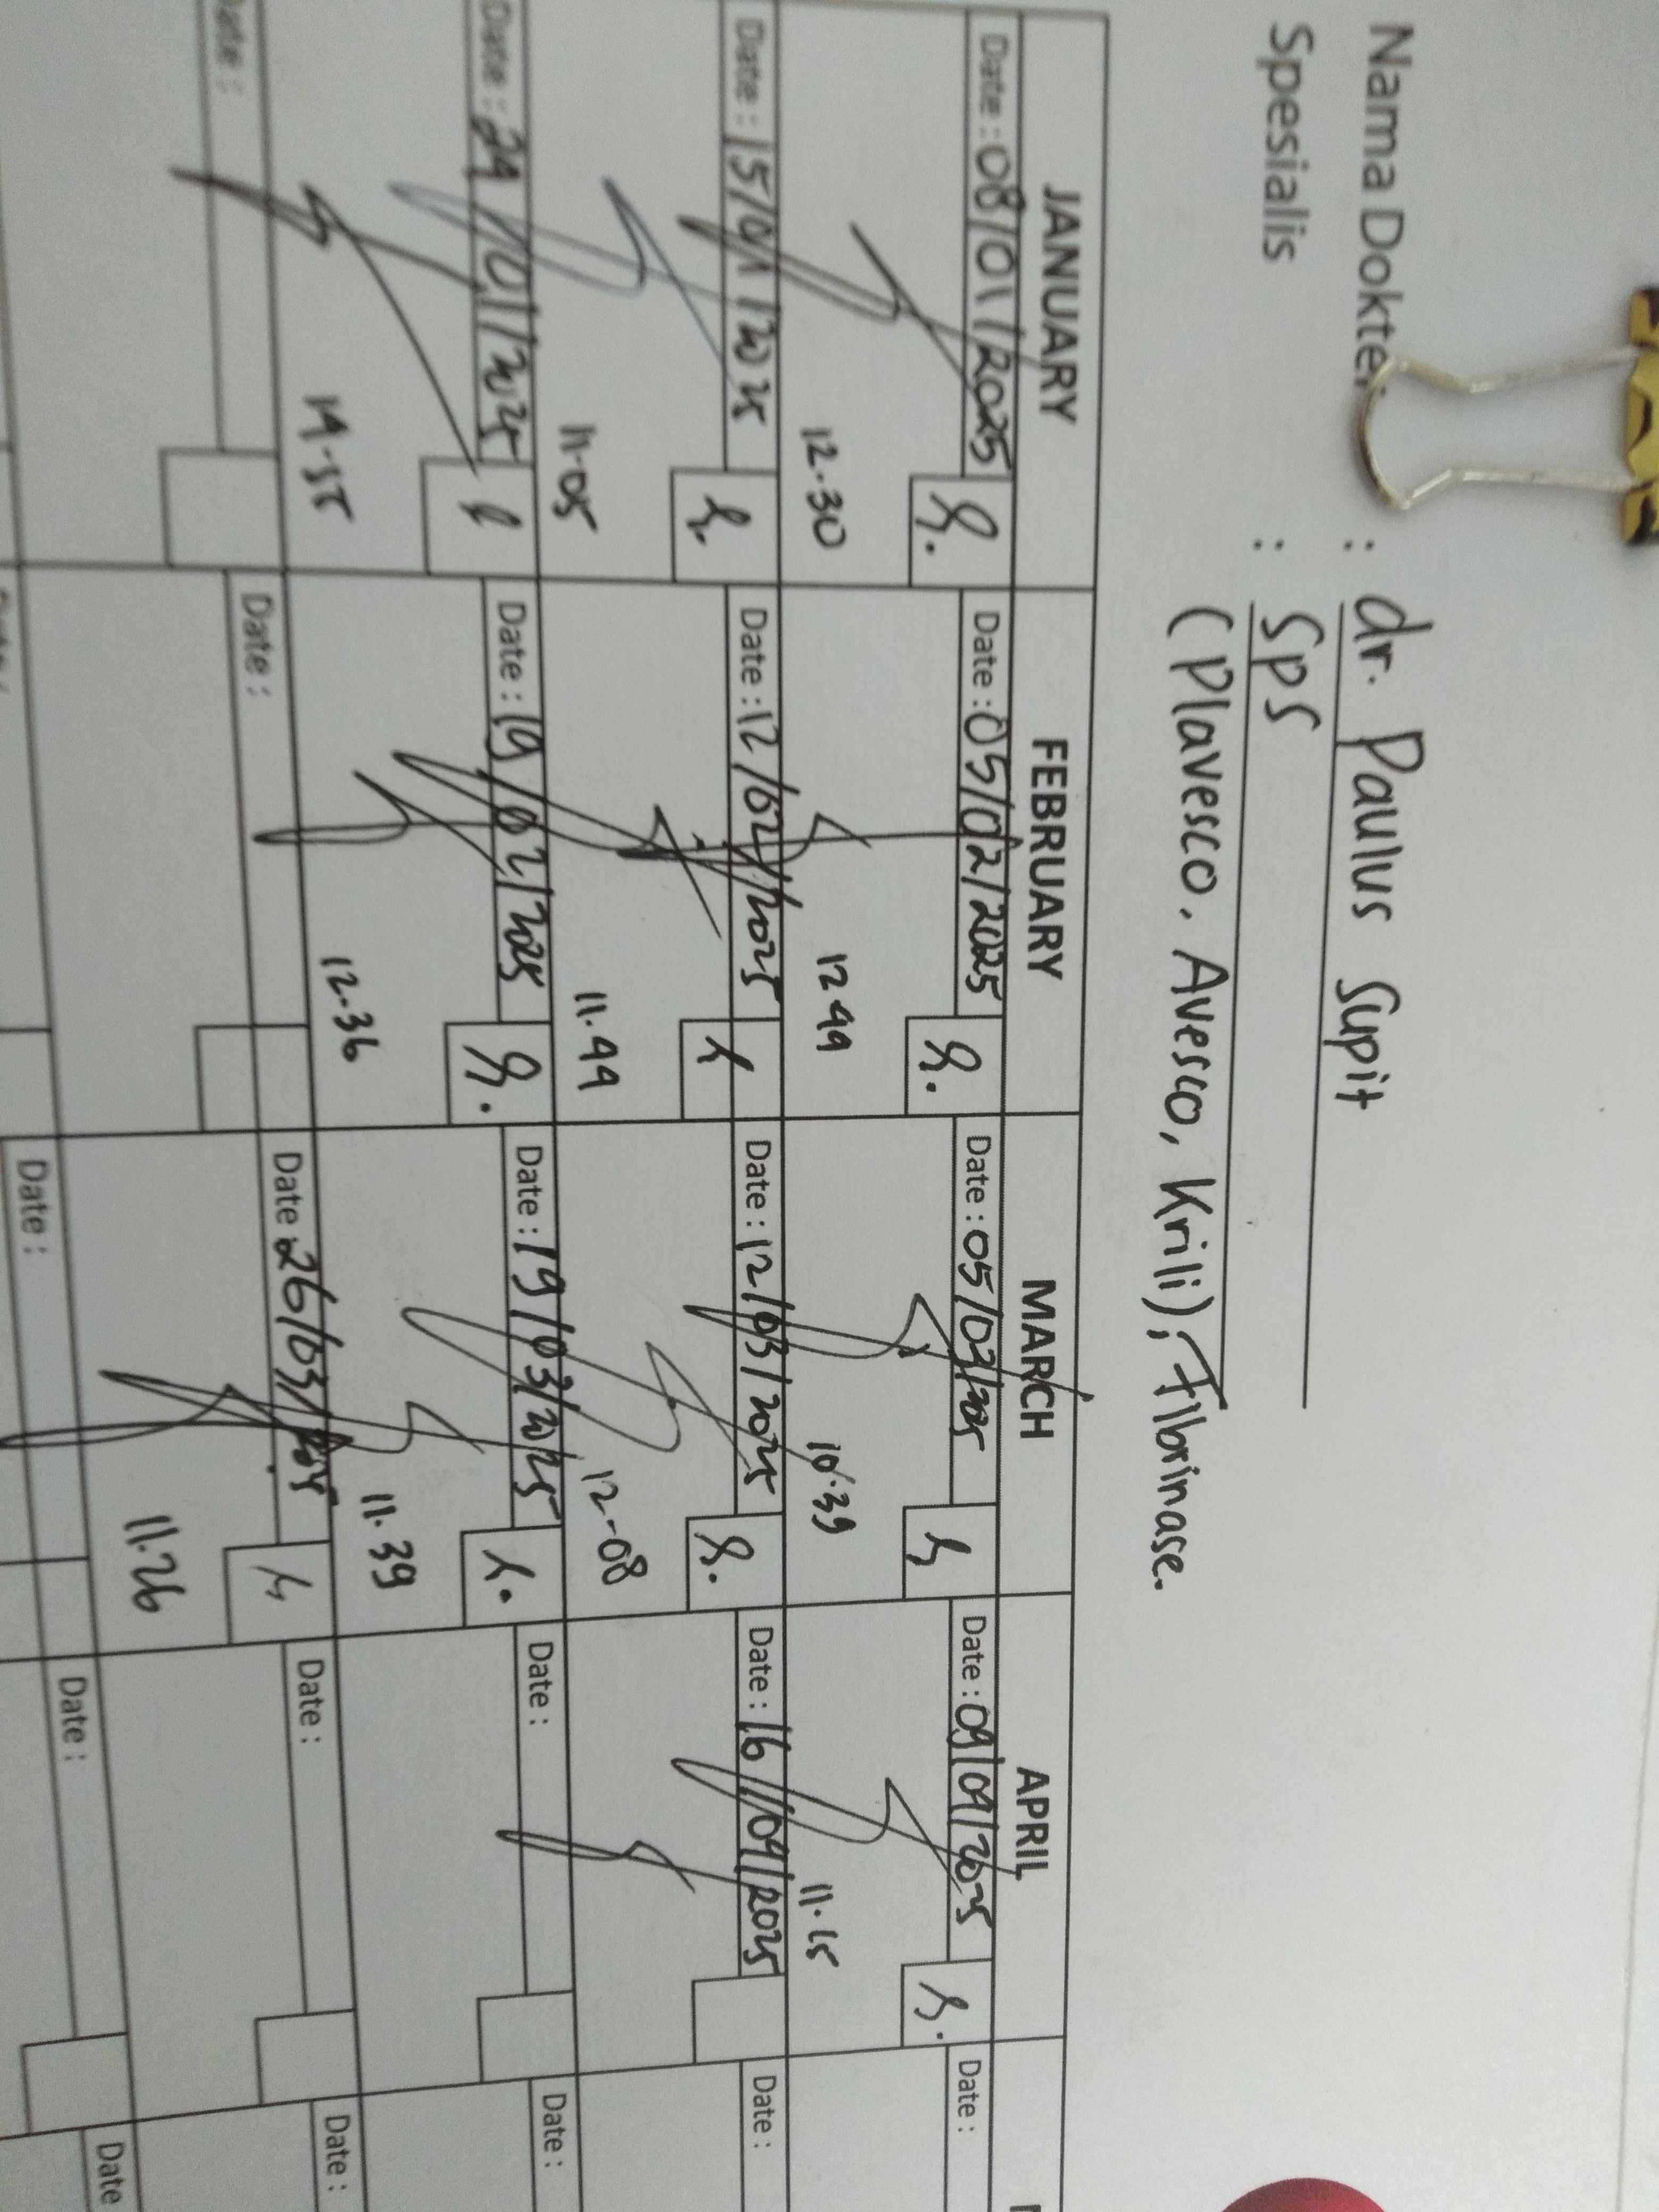 Nama Dokter : dr. Paulus Supit
Spesialis : Sps
(Plavesco, Avesco, Krili), Fibrinase.
JANUARY FEBRUARY MARCH APRIL
Date : 08/01/2025 Date : 05/02/2025 Date : 05/03/2025 Date : 09/04/2025 Date :
12.30 12 44 10.39 11.15
Date : 15/01/2025 Date : 12/02/2025 Date : 12/03/2025 Date : 16/04/2025 Date :
11.05 11.44 12-08
Date : 24/01/2025 Date : 19/02/2025 Date : 19/03/2025 Date : Date :
14.55 12.36 11.39
Date : Date : Date 26/03/2025 Date : Date :
11.26
Date : Date : Date : Date